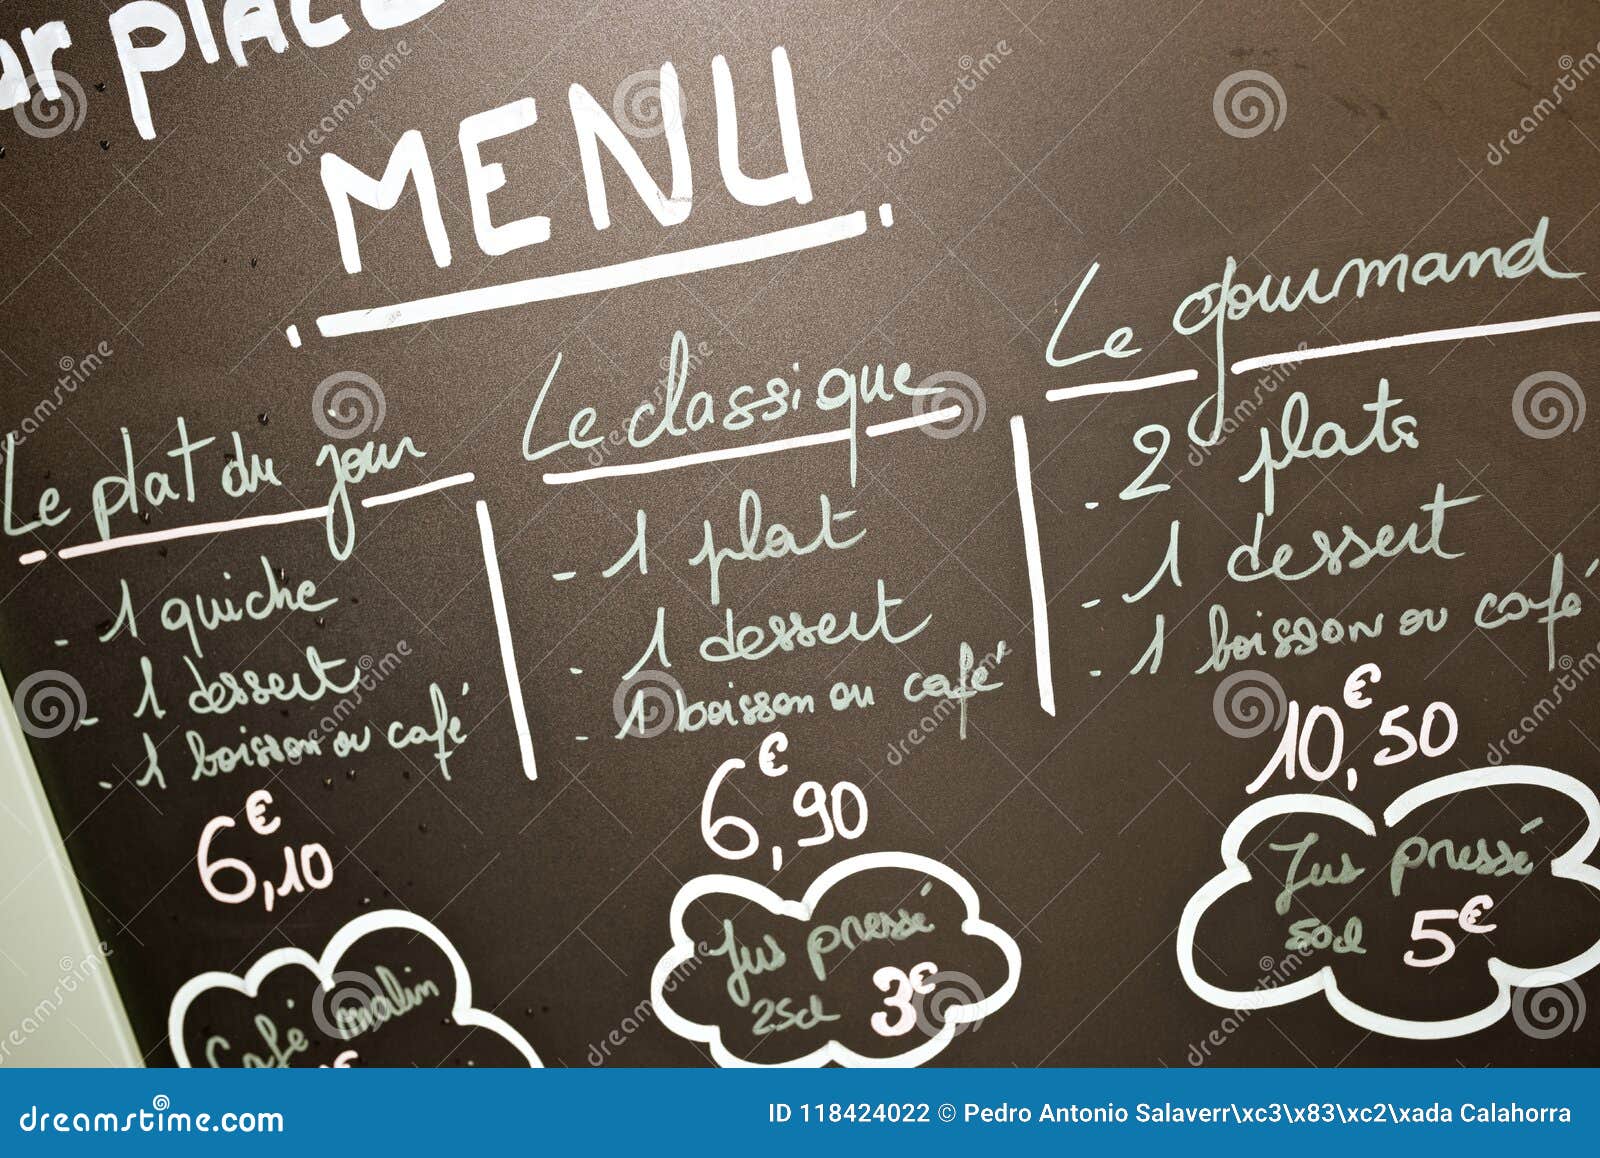 ar place
MENU
Le plat du jour
- 1 quiche
- 1 dessert
- 1 boisson ou café
6€,10
Café malin
€
Le classique
- 1 plat
- 1 dessert
- 1 boisson ou café
6€,90
Jus pressé
25cl 3€
Le gourmand
- 2 plats
- 1 dessert
- 1 boisson ou café
10€,50
Jus pressé
50cl 5€
dreamstime.com
ID 118424022 © Pedro Antonio Salaverr\xc3\x83\xc2\xada Calahorra